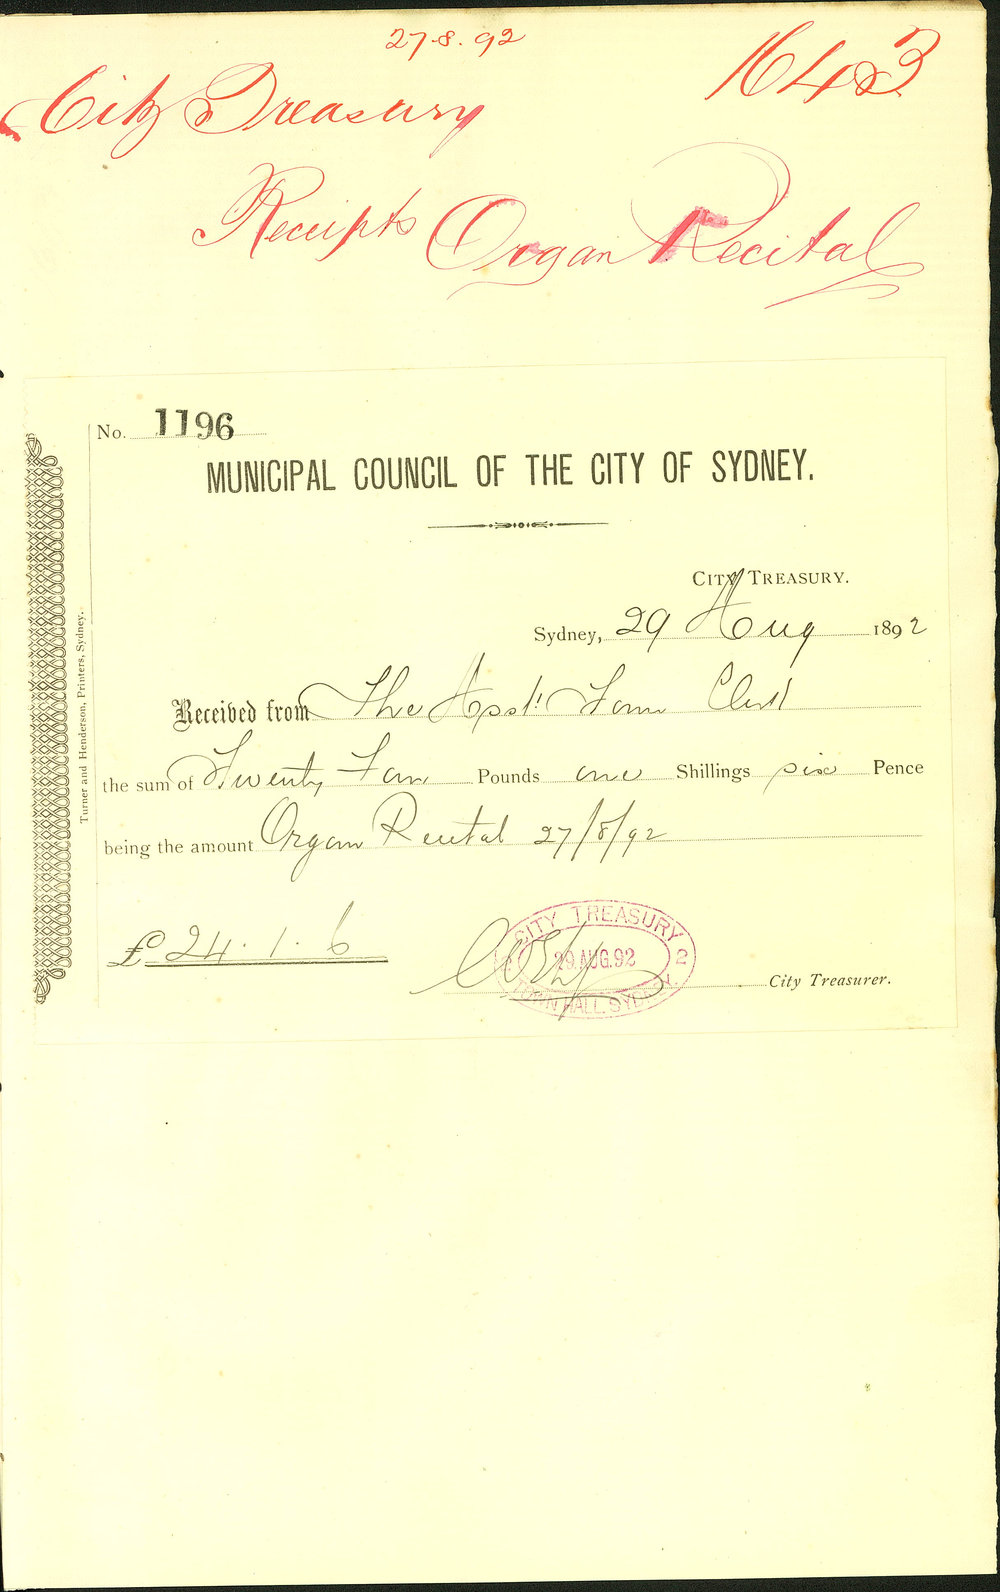 27.8.92
1643
City Treasury
Receipts Organ Recital
No. 1196
MUNICIPAL COUNCIL OF THE CITY OF SYDNEY.
CITY TREASURY.
Sydney, 29 Aug 1892
Received from The Asst. Town Clerk
the sum of Twenty Four Pounds one Shillings six Pence
being the amount Organ Recital 27/8/92
£24.1.6
CITY TREASURY
29.AUG.92 2
TOWN HALL SYDNEY.
City Treasurer.
Turner and Henderson, Printers, Sydney.